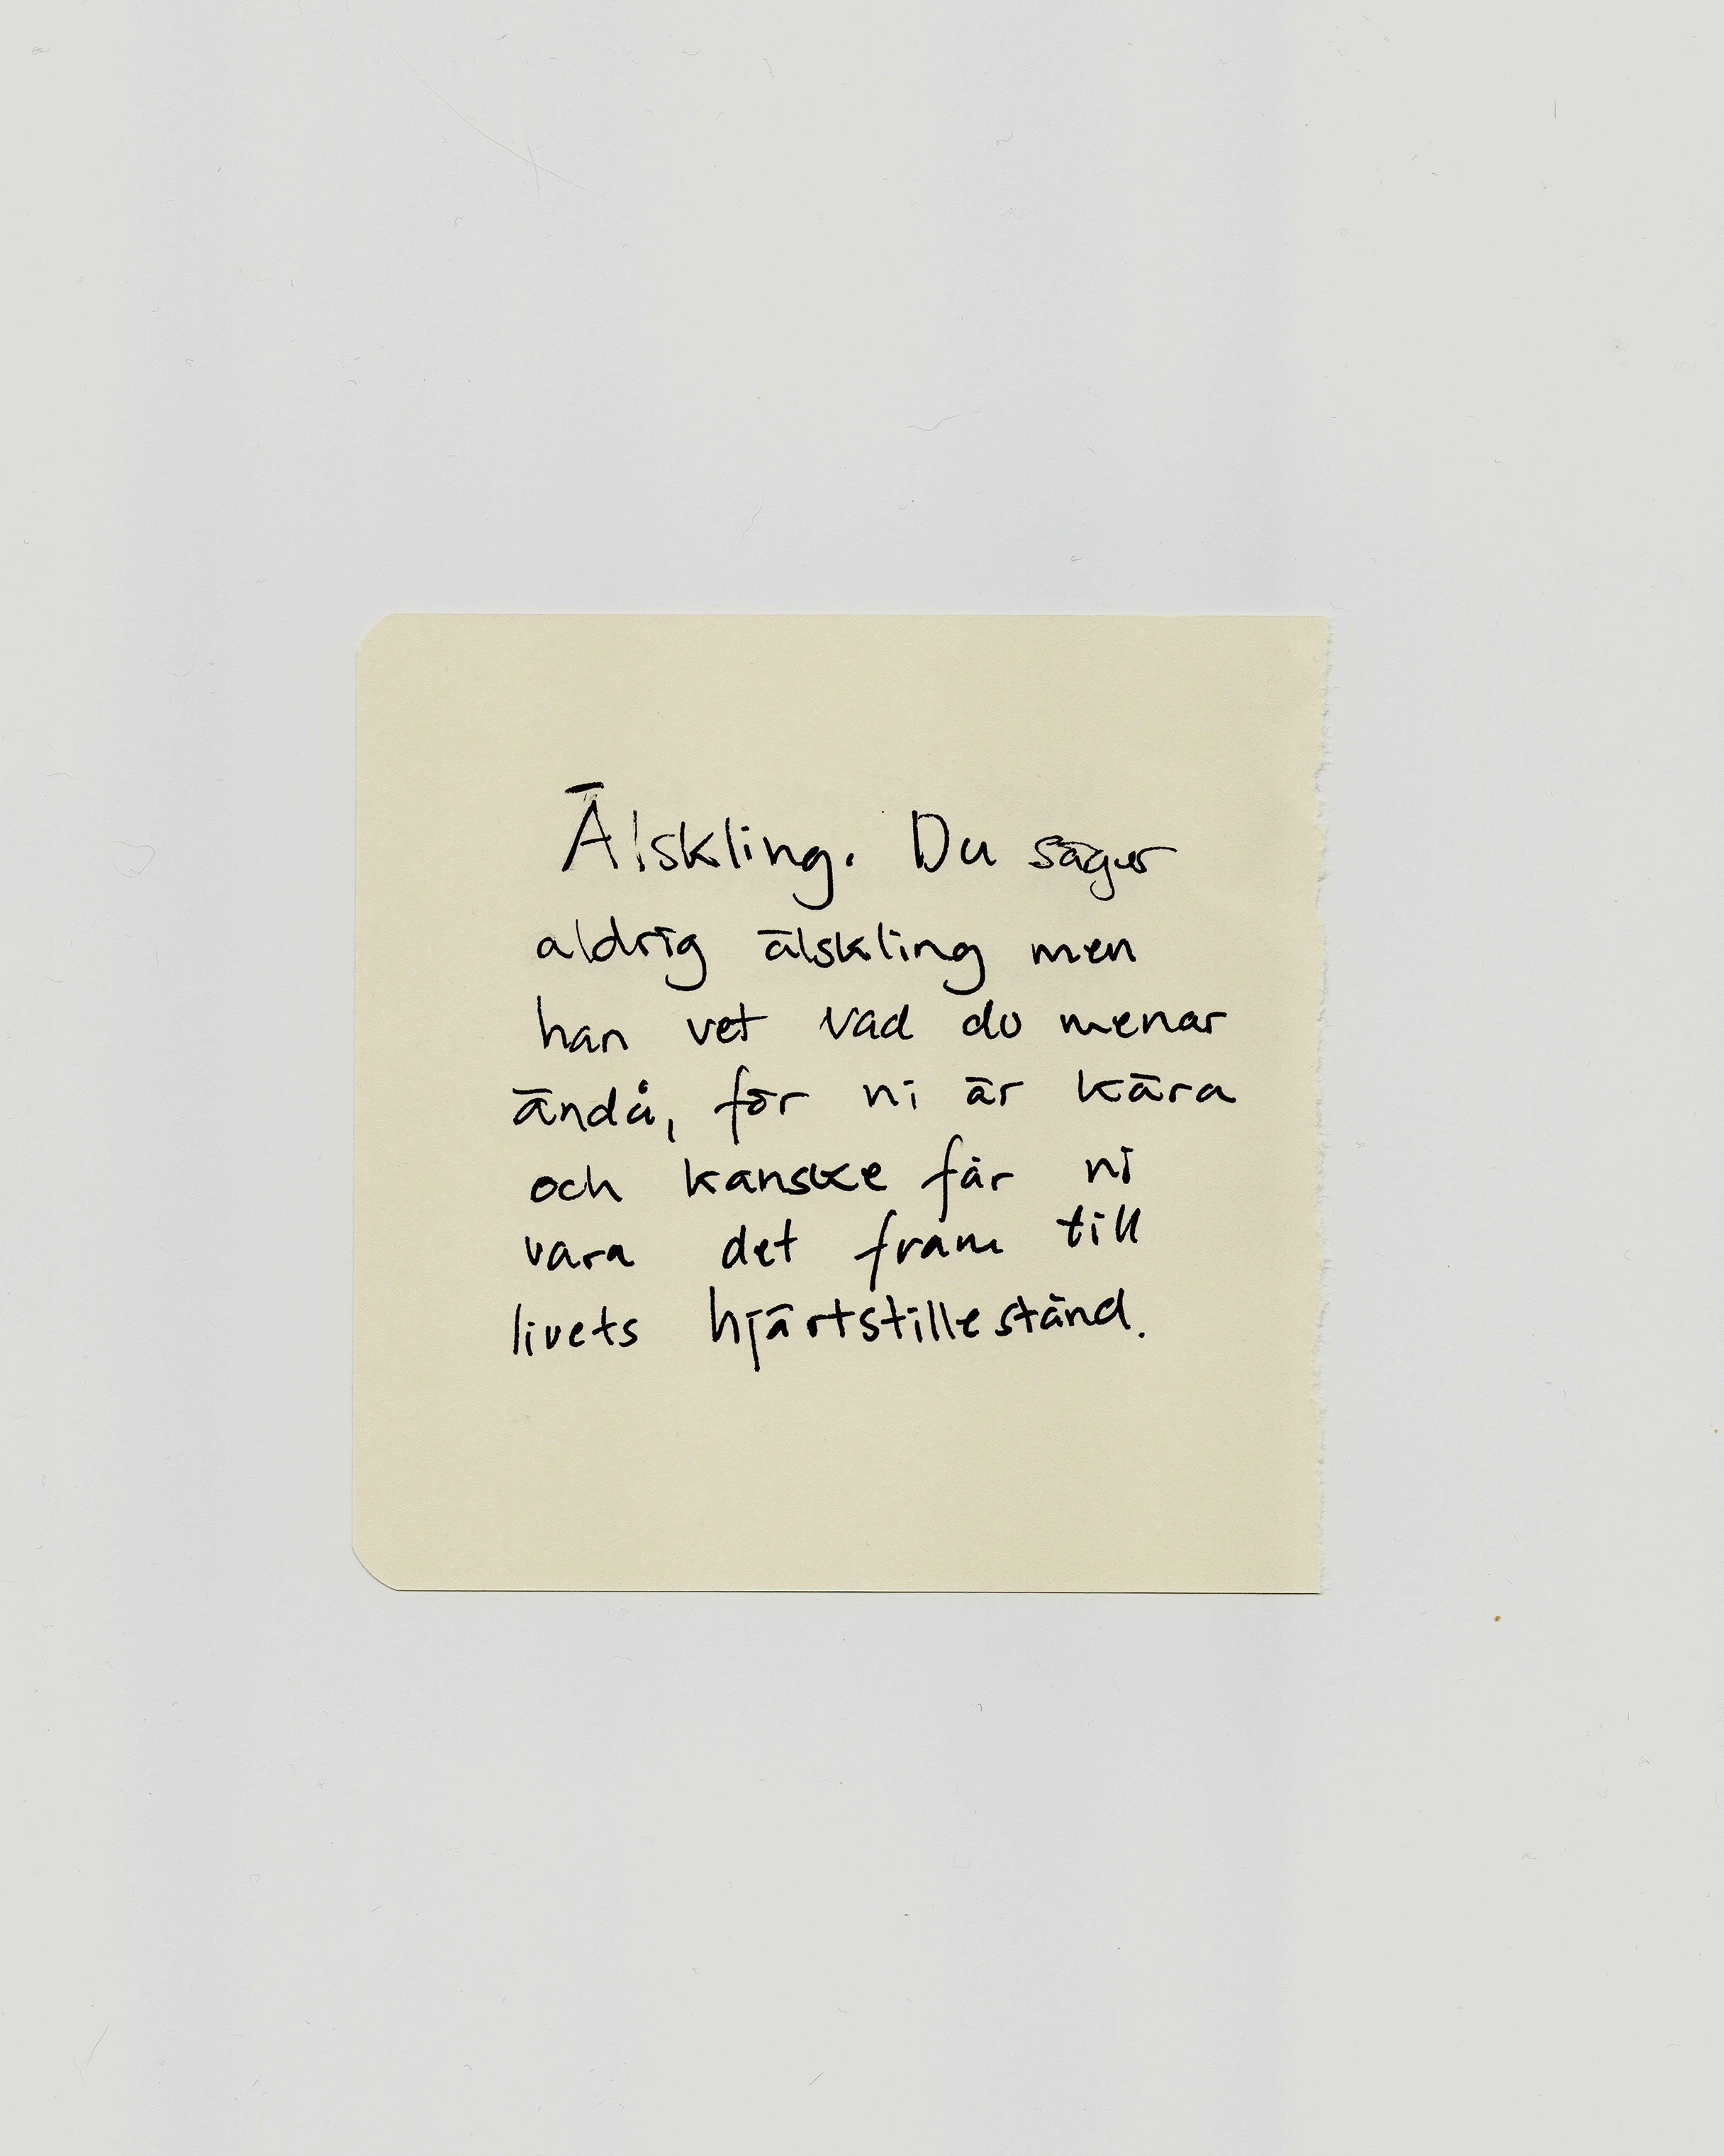 Älskling. Du säger
aldrig älskling men
han vet vad du menar
ändå, för ni är kära
och kanske får ni
vara det fram till
livets hjärtstillestånd.